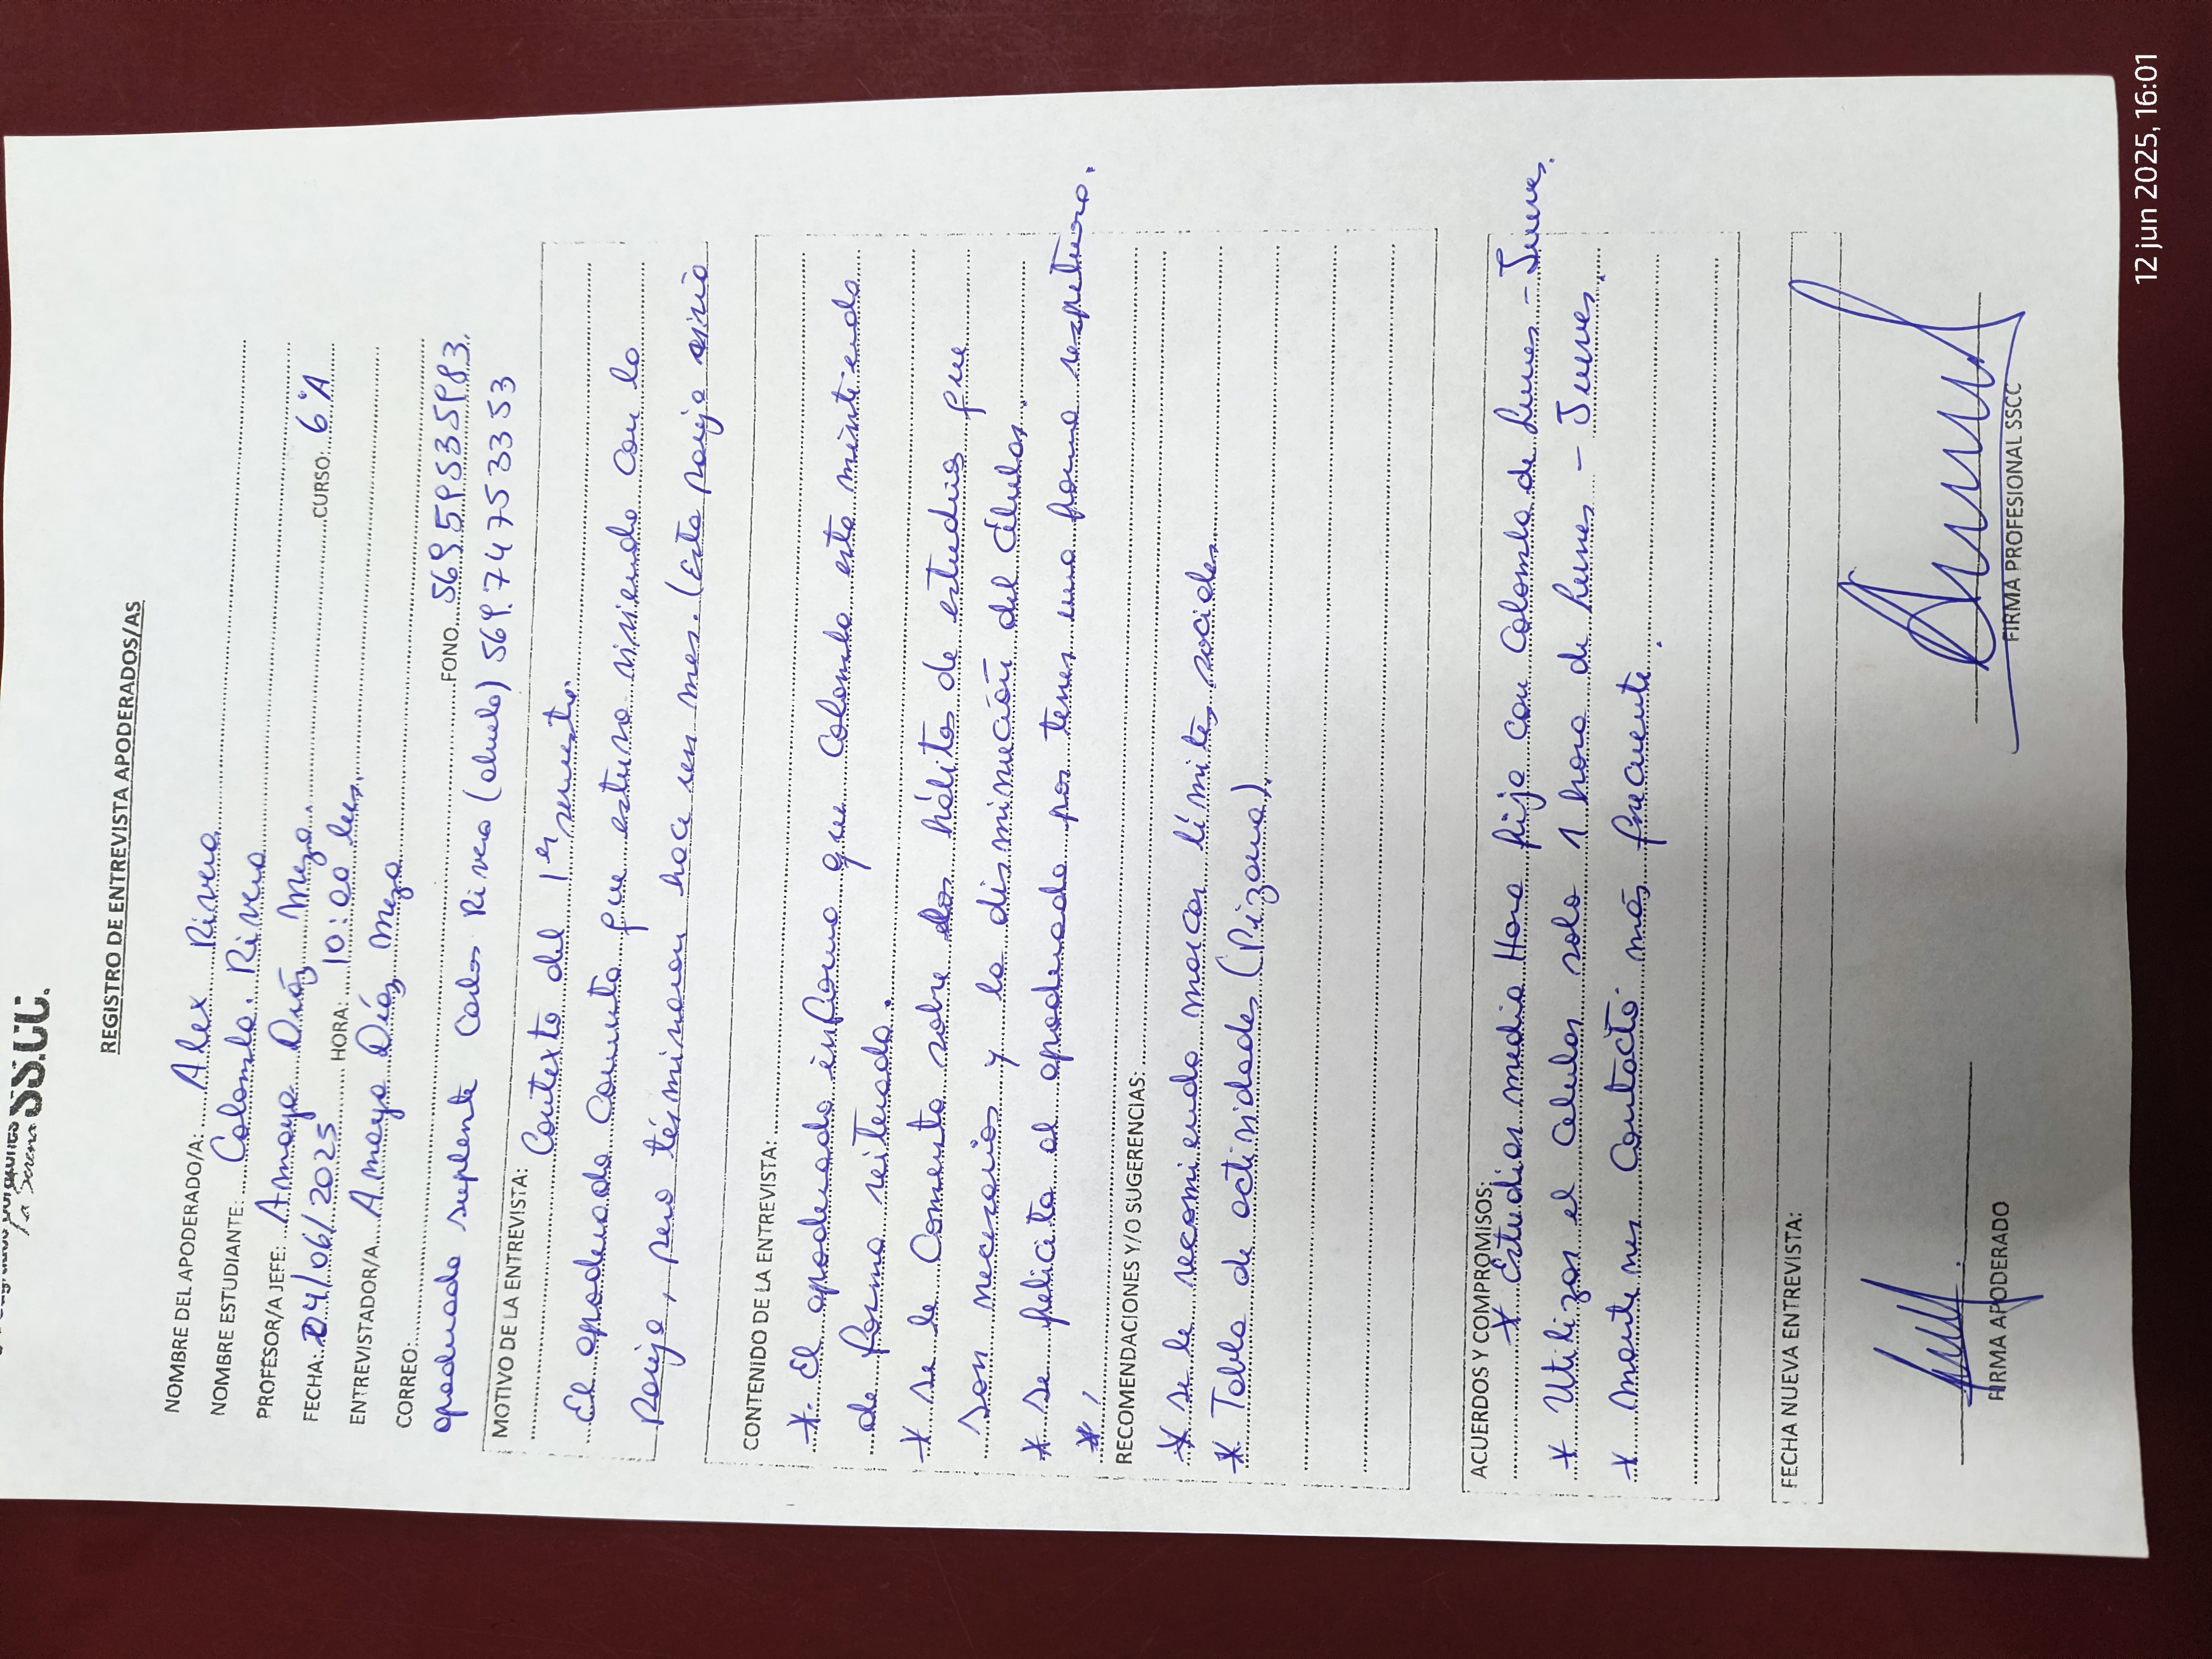 SS.CC.
La Serena
REGISTRO DE ENTREVISTA APODERADOS/AS
NOMBRE DEL APODERADO/A: Alex Rivera
NOMBRE ESTUDIANTE: Colomba Rivera
PROFESOR/A JEFE: Amaya Díaz Meza
FECHA: 04/06/2025 HORA: 10:00 CURSO: 6°A
ENTREVISTADOR/A Amaya Díaz Meza
CORREO: FONO 569 59535983
apoderado suplente Carlos Rivera (abuelo) 569 7475 33 53
MOTIVO DE LA ENTREVISTA: Contexto del 1er semestre.
El apoderado comenta que estuvo viviendo con la
pareja, pero terminaron hace un mes. (Esta pareja vivió
CONTENIDO DE LA ENTREVISTA:
* El apoderado informa que Colomba esta mintiendo
de forma reiterada.
* se le comenta sobre los hábitos de estudios que
son necesarios y la disminución del celular.
* se felicita al apoderado por tener una forma respetuosa.
*,
RECOMENDACIONES Y/O SUGERENCIAS:
* se le recomienda marcar límites sociales
* Tabla de actividades (Pizarra).
ACUERDOS Y COMPROMISOS:
* Estudiar media Hora fija con Colomba de lunes - Jueves.
* Utilizar el celular solo 1 hora de lunes - Jueves.
* mantener contacto más frecuente.
FECHA NUEVA ENTREVISTA:
FIRMA APODERADO FIRMA PROFESIONAL SSCC
12 jun 2025, 16:01